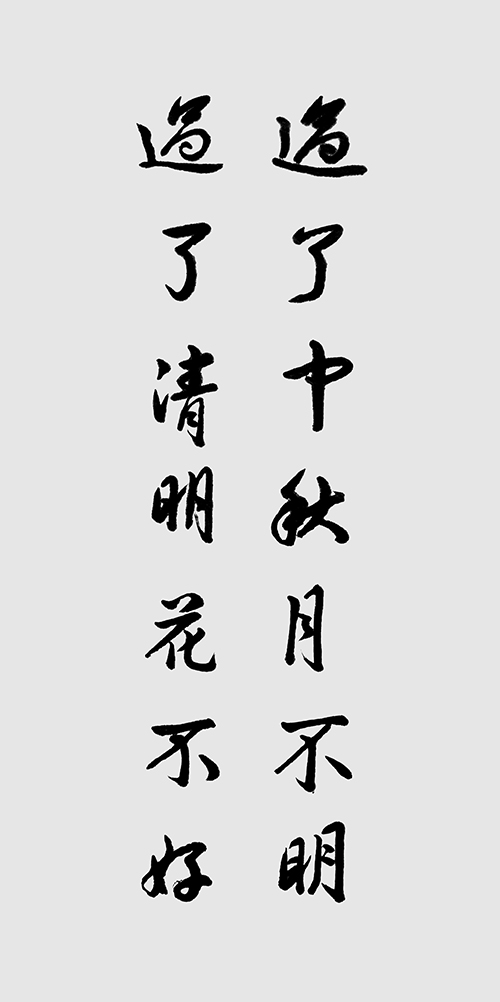 過了中秋月不明
過了清明花不好